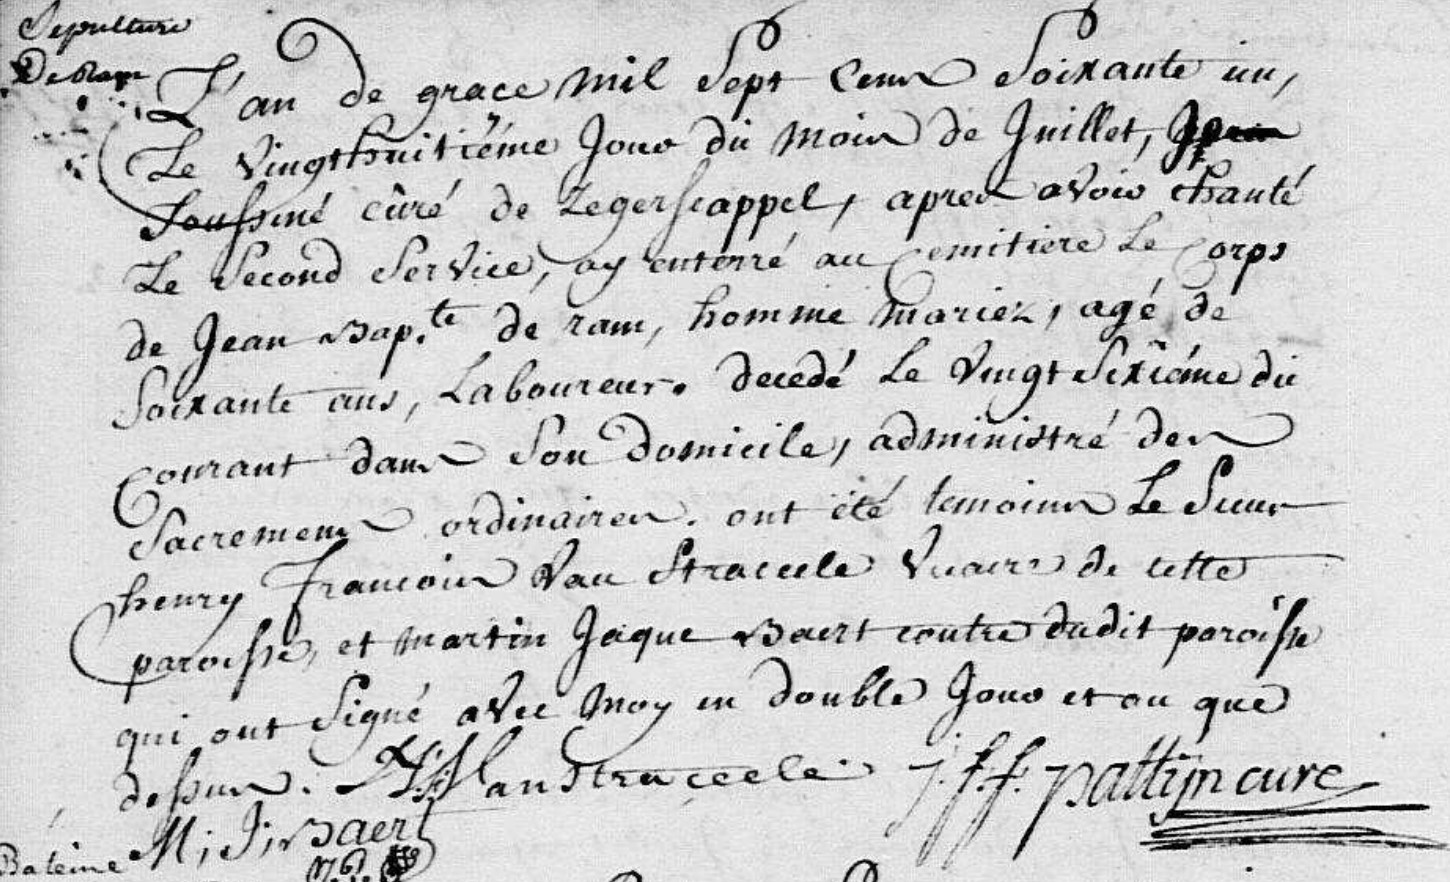 Sepulture
De Ram
L'an de grace mil sept cens soixante un,
Le vingthuitiême jour du mois de Juillet, 
soussiné cûré de Zegerscappel, apres avoir chanté
Le second service, ay enterré au cemitiere Le corps
de Jean Bap.te de ram, homme mariez, agé de
soixante ans, Laboureur. decedé Le vingt sixiéme du
courant dans son domicile, administré des
sacremens ordinaires. ont été temoins Le sieur
henry francois Van Straceele vicair de cette
paroisse, et martin Jaque Baert coutre dudit paroisse
qui ont signé avec moy en double jour et an que
dessus. H: f: Van Straceele j. f. f. pattijn curé
M: J: Baert
Bateme